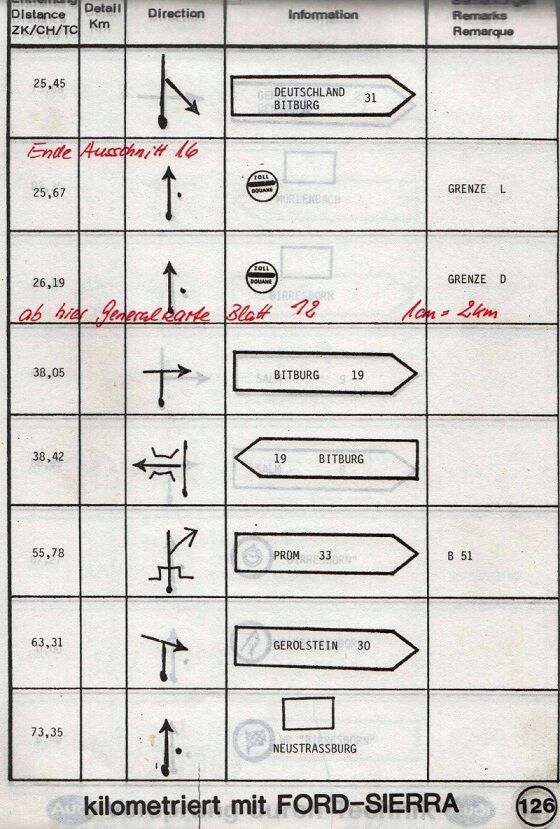 Distance
ZK/CH/TC
Detail
Km
Direction
Information
Remarks
Remarque
25,45
DEUTSCHLAND
BITBURG 31
Ende Ausschnitt 16
25,67
ZOLL
DOUANE
GRENZE L
26,19
ZOLL
DOUANE
GRENZE D
ab hier Generalkarte Blatt 12 1cm = 2km
38,05
BITBURG 19
38,42
19 BITBURG
55,78
PROM 33
B 51
63,31
GEROLSTEIN 30
73,35
NEUSTRASSBURG
kilometriert mit FORD-SIERRA
126